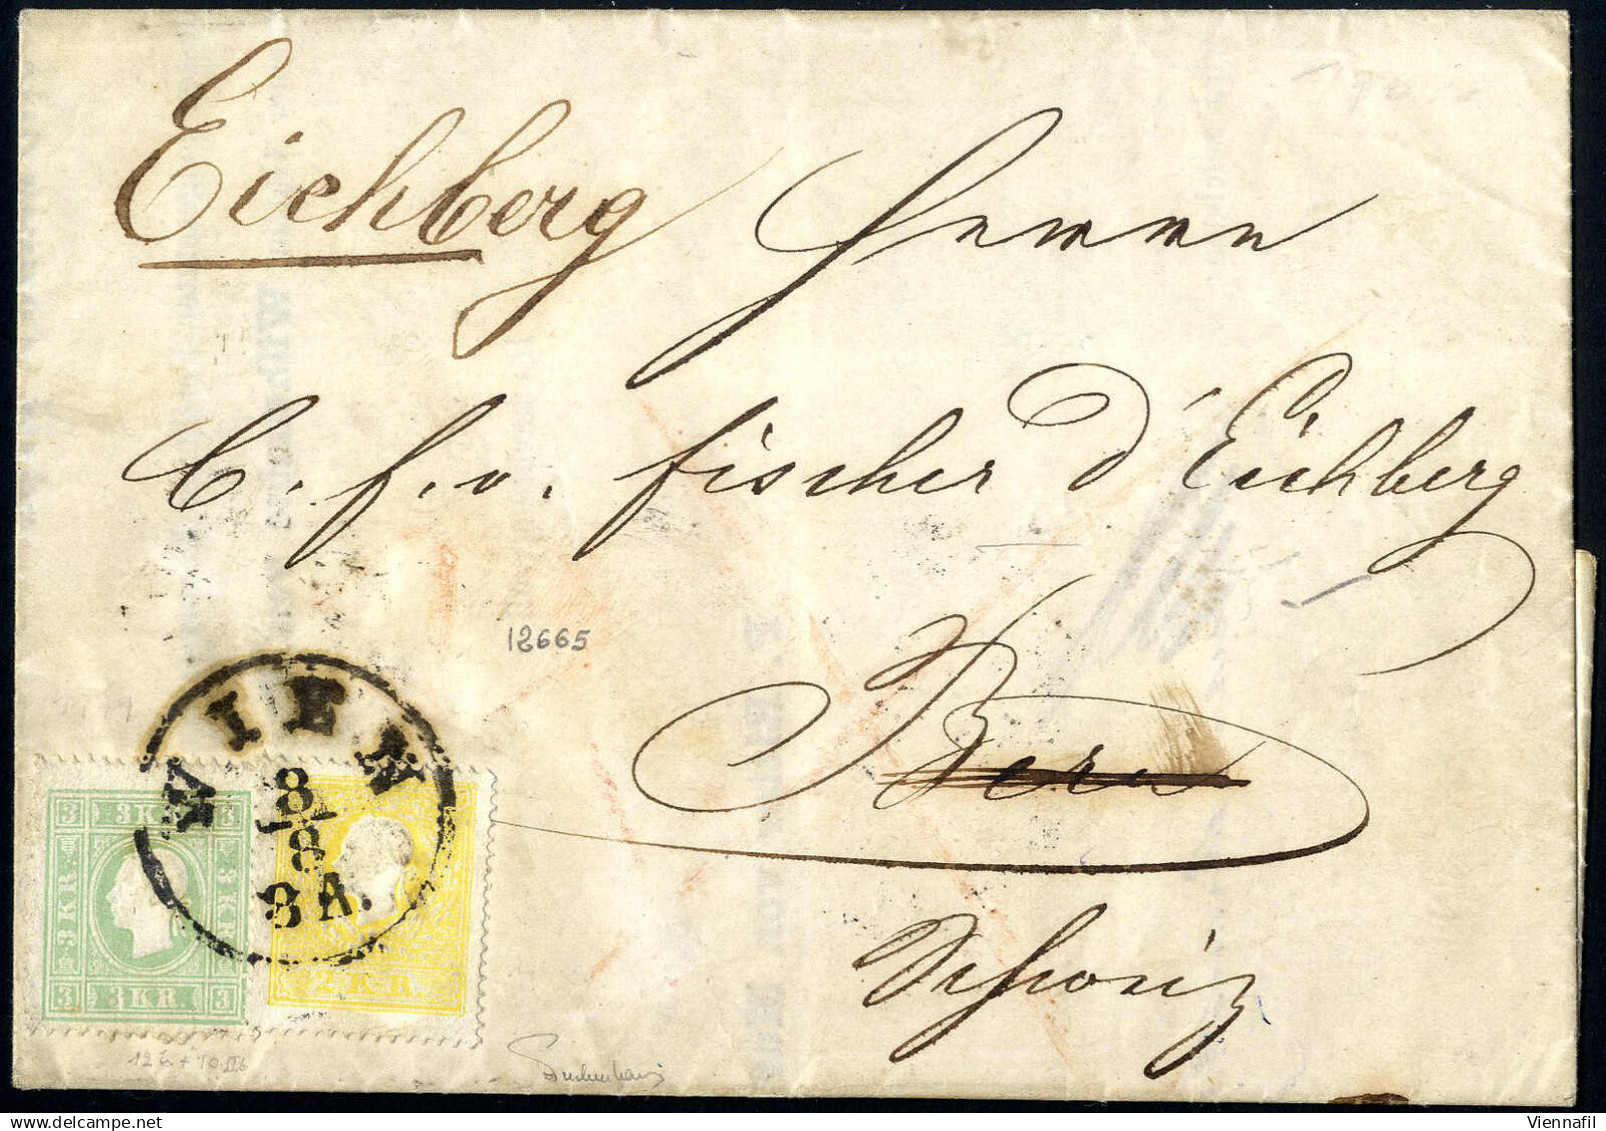 Eichberg Herrn
C. f. v. fischer d'Eichberg
12665
Bern
Schweiz
WIEN
8
8
8 A.
3 3 KR. 3
3 KR. 3 KR.
3 3 KR. 3
2 KR.
Viennafil